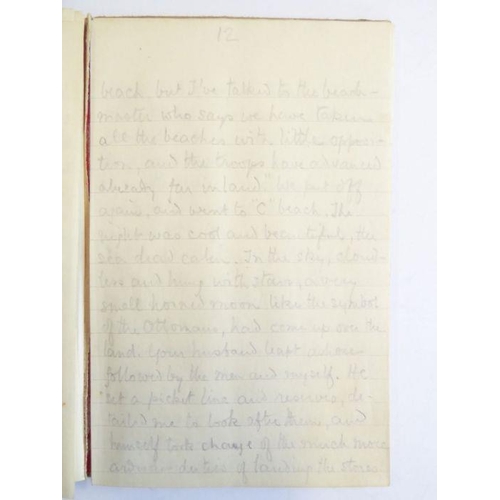 12
beach but I've talked to the beach-
master who says we have taken
all the beaches with little opposi-
tion, and the troops have advanced
already far inland". We put off
again, and went to "C" beach. The
night was cool and beautiful, the
sea dead calm. In the sky, cloud-
less and hung with stars, a very
small horned moon like the symbol
of the Ottomans, had come up over the
land. Your husband leapt ashore
followed by the men and myself. He
set a picket line and reserves, de-
tailed me to look after them, and
himself took charge of the much more
arduous duties of landing the stores